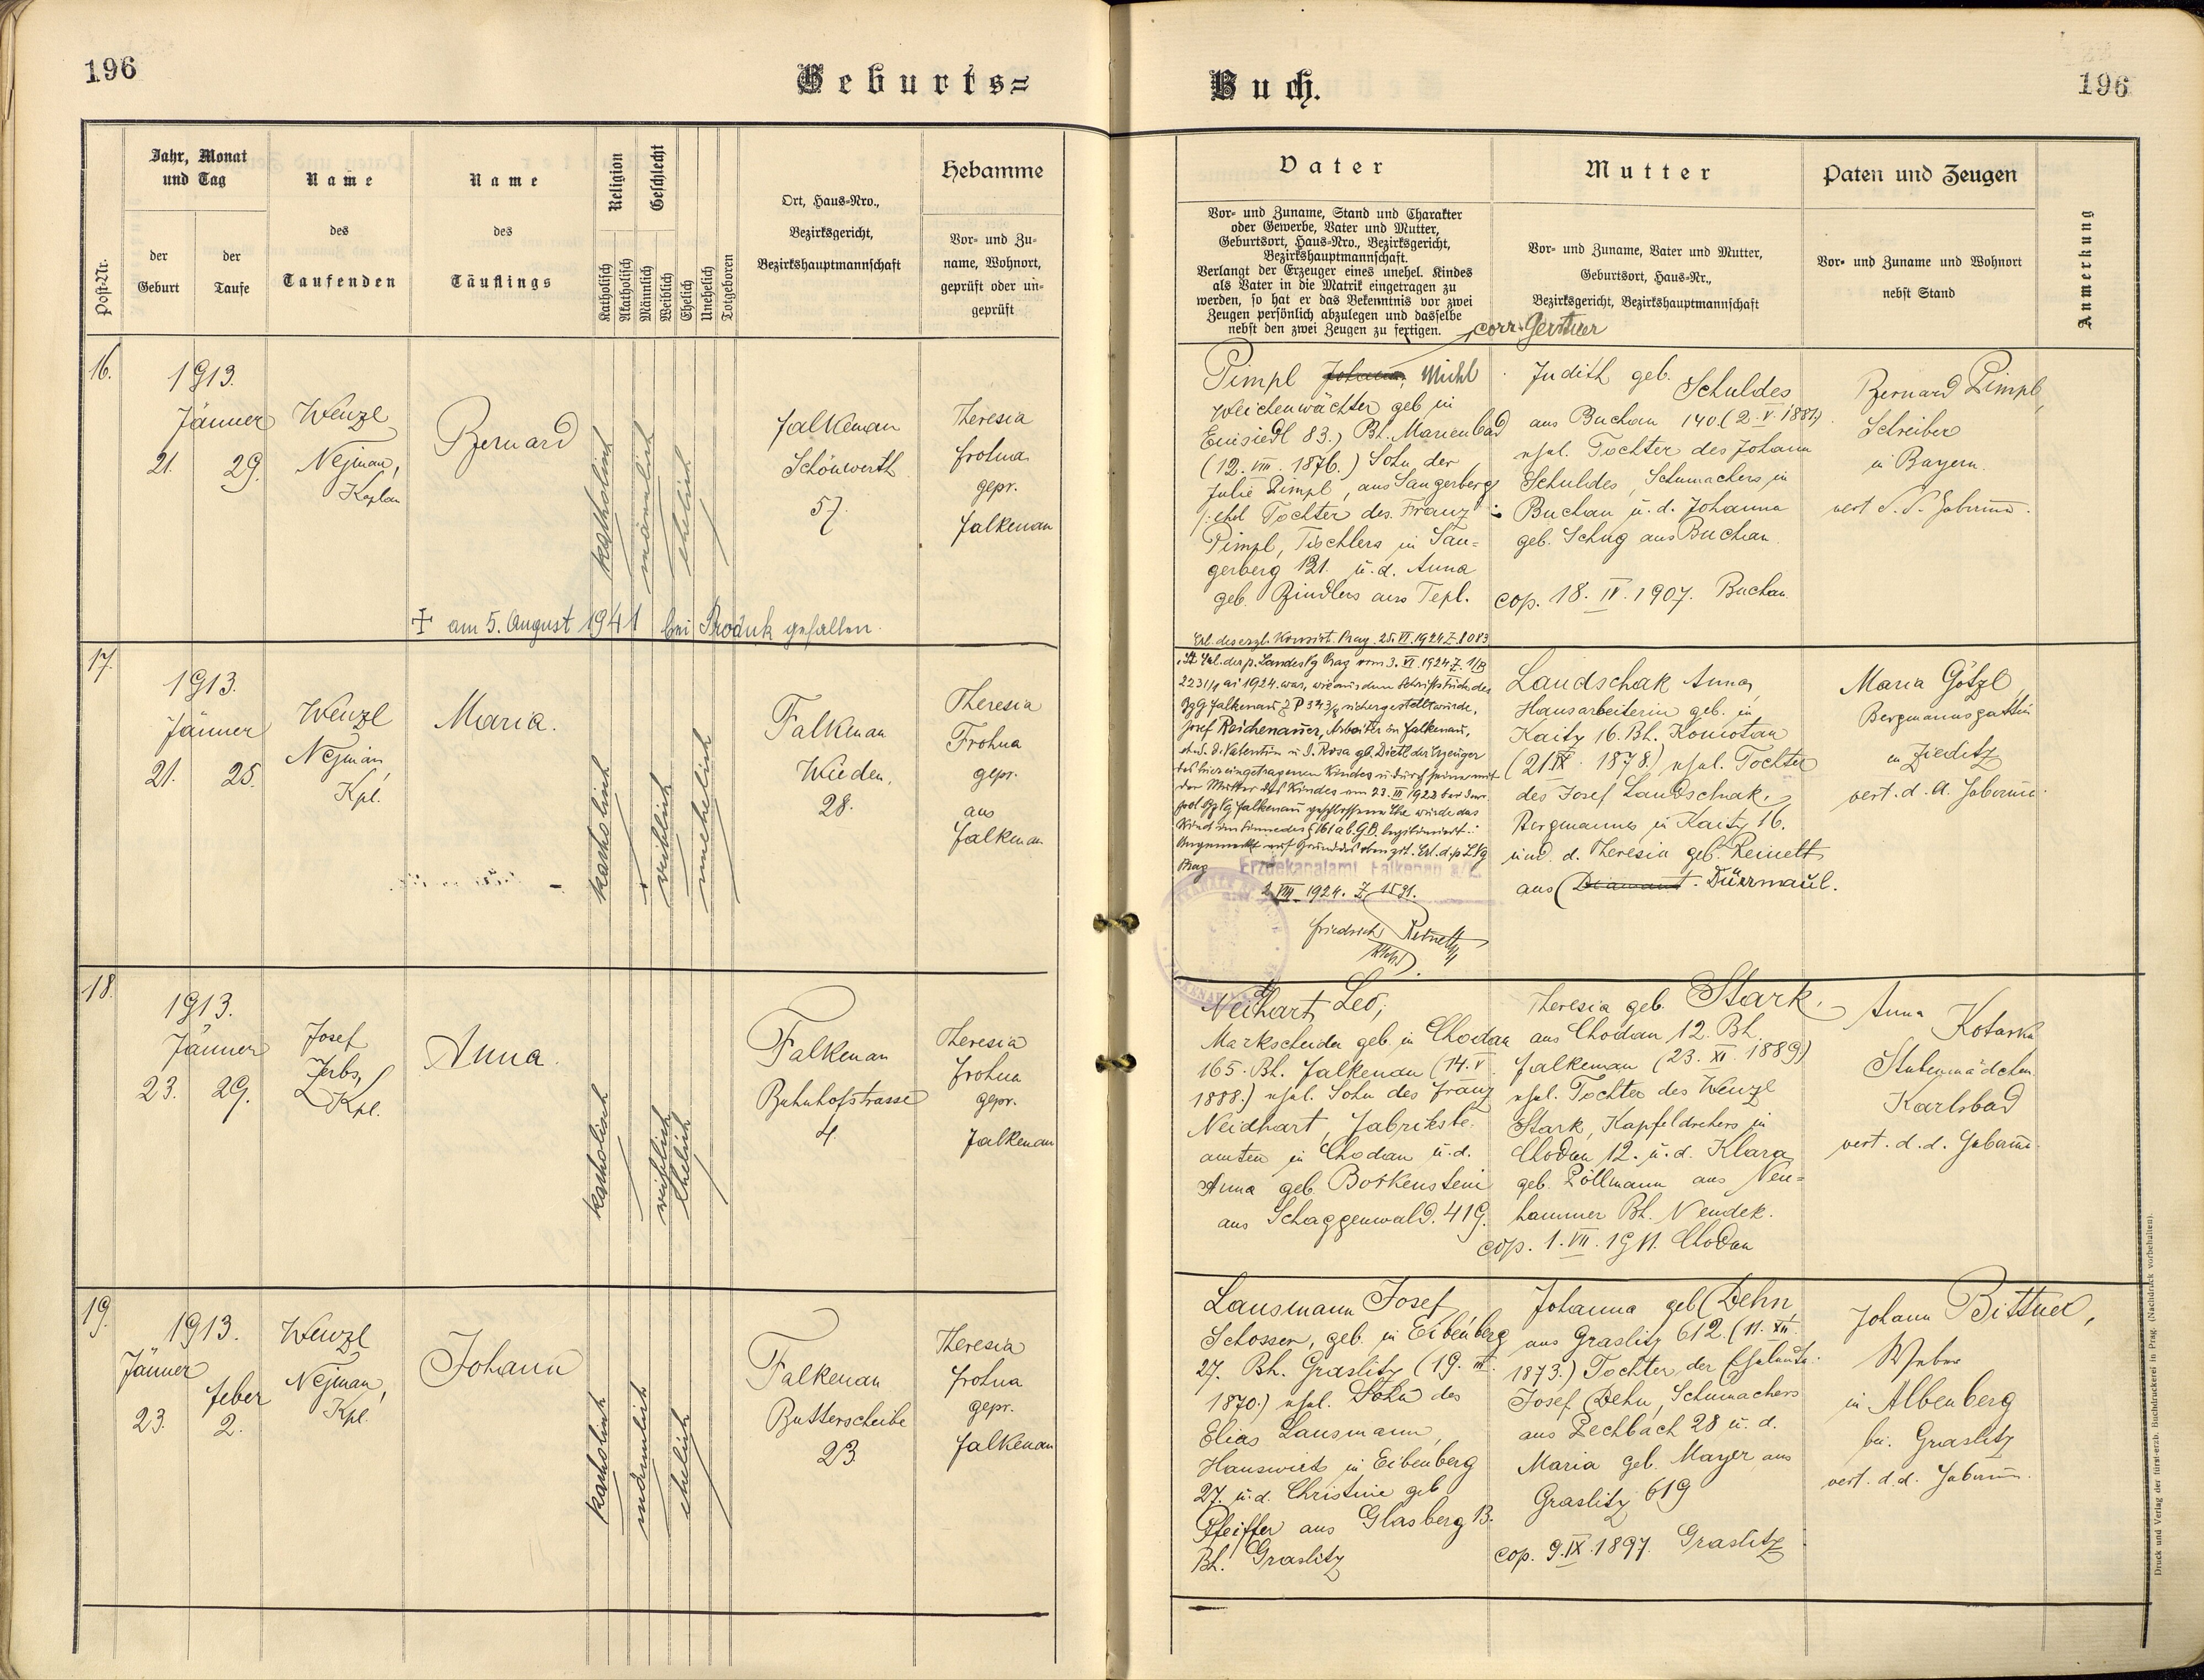 196
Geburts=
Jahr, Monat
und Tag
Name
Name
Religion
Geschlecht
Hebamme
Post-Nr.
der
Geburt
der
Taufe
des
Taufenden
des
Täuflings
Katholisch
Akatholisch
Männlich
Weiblich
Ehelich
Unehelich
Totgeboren
Ort, Haus-Nro.,
Bezirksgericht,
Bezirkshauptmannschaft
Vor- und Zu-
name, Wohnort,
geprüft oder un-
geprüft
16.
1913.
Jänner
21. 29.
Wenzl
Nejman,
Kaplan
Bernard
katholisch
männlich
ehelich
Falkenau
Schönwerth
57.
Theresia
Frohna
gepr.
Falkenau
+ am 5. August 1941 bei Produk gefallen.
17.
1913.
Jänner
21. 25.
Wenzl
Nejman,
Kpl.
Maria.
katholisch
weiblich
unehelich
Falkenau
Wieden,
28.
Theresia
Frohna
gepr.
aus
Falkenau
18.
1913.
Jänner
23. 29.
Josef
Zerbs,
Kpl.
Anna.
katholisch
weiblich
ehelich
Falkenau
Bahnhofstrasse
4.
Theresia
Frohna
gepr.
Falkenau
19.
1913.
Jänner
Feber
23. 2.
Wenzl
Nejman,
Kpl.
Johann
katholisch
männlich
ehelich
Falkenau
Butterscheibe
23.
Theresia
Frohna
gepr.
Falkenau
Buch.
196
Vater
Mutter
Paten und Zeugen
Anmerkung
Vor- und Zuname, Stand und Charakter
oder Gewerbe, Vater und Mutter,
Geburtsort, Haus-Nro., Bezirksgericht,
Bezirkshauptmannschaft.
Verlangt der Erzeuger eines unehel. Kindes
als Vater in die Matrik eingetragen zu
werden, so hat er das Bekenntnis vor zwei
Zeugen persönlich abzulegen und dasselbe
nebst den zwei Zeugen zu fertigen.
Vor- und Zuname, Vater und Mutter,
Geburtsort, Haus-Nr.,
Bezirksgericht, Bezirkshauptmannschaft
Vor- und Zuname und Wohnort
nebst Stand
corr.
Pimpl Johann, Michl
Weichenwächter geb in
Einsiedl 83.) Bh. Marienbad
(12. VIII. 1876.) Sohn der
Julie Pimpl, aus Sangerberg
/: ehel Tochter des Franz :
Pimpl, Tischlers in San=
gerberg 121. u. d. Anna
geb. Bindlers aus Tepl.
Judith geb.
Schuldes
aus Buchau 140. (2. V. 1881)
ehel. Tochter des Johann
Schuldes, Schumachers in
Buchau u. d. Johanna
geb. Schug aus Buchau.
cop. 18. IV. 1907. Buchau
Bernard Pimpl,
Schreiber
in Bayern.
Erl. des erzb. Konsist. Prag. 25. VI. 1924 Z. 8083
Lt Erl. der p. Landes Vg Prag vom 3. VI. 1924 Z. 1/B
2231/1 ai 1924 war, wie aus dem Schriftstücke des
BzG Falkenau Z P 343/2 sichergestellt wurde,
Josef Reichenauer, Arbeiter in Falkenau,
ehel. S. d. Valentin u. d. Rosa gb. Dietl der Erzeuger
des hier eingetragenen Kindes u. durch seine mit
der Mutter des Kindes am 23. III 1922 bei der
pol. Bz Vg Falkenau geschlossene Ehe wurde das
Kind im Sinne des § 161 a. b. G. B. legitimiert.
Angemerkt auf Grund des oben zit. Erl. d. p LVg
Prag
Erzdekanalamt Falkenau a/E.
2. VIII. 1924. Z. 1591.
Friedrich Reinelt
Landschak Anna,
Hausarbeiterin geb. in
Kaitz 16. Bh. Komotau
(21 IX. 1878.) ehel. Tochter
des Josef Landschak,
Bergmannes in Kaitz 16.
und. d. Theresia geb. Reinett
aus Diamant. Dürrmaul.
Maria Götzl,
Bergmannsgattin
in Zieditz
Neidhart, Leo,
Markscheider geb. in Chodau
165. Bh. Falkenau (14. V.
1888.) ehel. Sohn des Franz
Neidhart, Fabriksbe-
amten in Chodau u. d.
Anna geb. Borkenstein
aus Schaggenwald. 419.
Theresia geb. Stark,
aus Chodau 12. Bh.
Falkenau (23. XI. 1889)
ehel. Tochter des Wenzl
Stark, Kapfeldrehers in
Chodau 12. u. d. Klara
geb. Pöllmann aus Neu=
hammer Bh. Neudek.
cop. 1. VII. 1911. Chodau
Anna Kotarka
Stubenmädchen
Karlsbad
Lausmann Josef,
Schosser, geb. in Eibenberg
27. Bh. Graslitz (19. III.
1870.) ehel. Sohn des
Elias Lausmann,
Hauswirts in Eibenberg
27. u. d. Christine geb
Pfeiffer aus Glasberg 13.
Bh. Graslitz
Johanna geb Dehn
aus Graslitz 612. (11. XII.
1873.) Tochter der Eheleute
Josef Dehn, Schumachers
aus Pechbach 28 u. d.
Maria geb. Mayer aus
Graslitz 619
cop. 9. IX. 1897. Graslitz
Johann Bittner,
Weber
in Albenberg
bei. Graslitz
Druck und Verlag der fürst-erzb. Buchdruckerei in Prag. (Nachdruck vorbehalten).